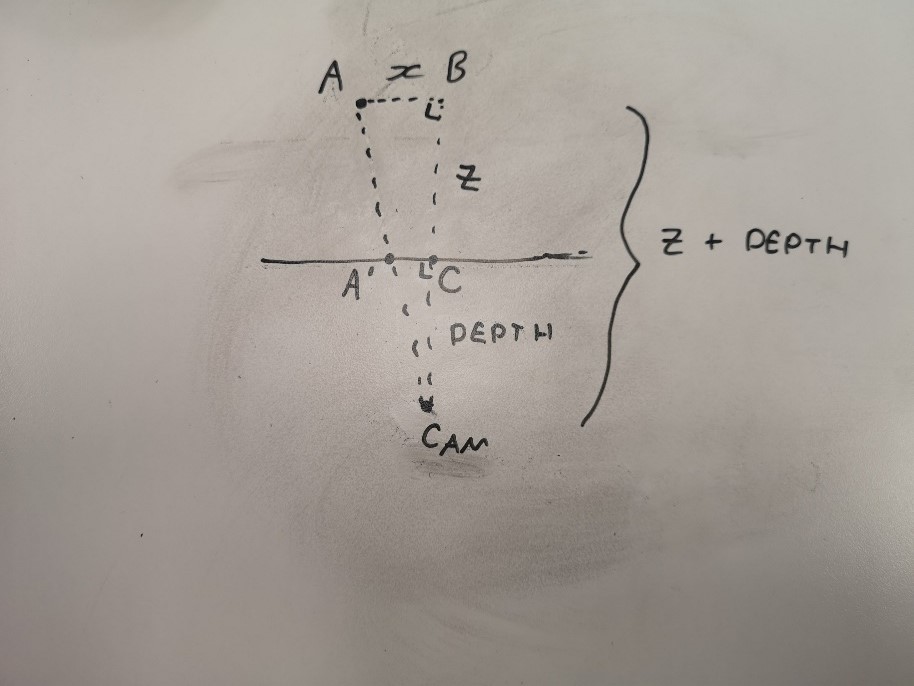 A x B
Z
Z + DEPTH
A' C
DEPTH
CAM